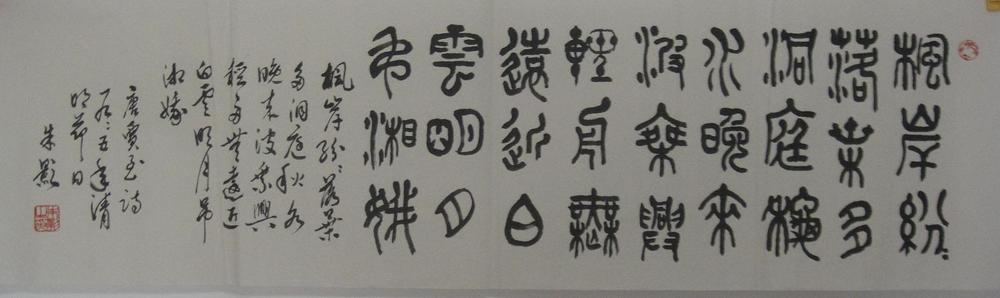 楓岸紛〻
落葉多
洞庭秋
水晚來
波乘興
輕舟無
遠近白
雲明月
弔湘娥
楓岸紛〻落葉
多洞庭秋水
晚來波乘興
輕舟無遠近
白雲明月弔
湘娥
唐賈至詩
一九〻五年清
明節日
朱影